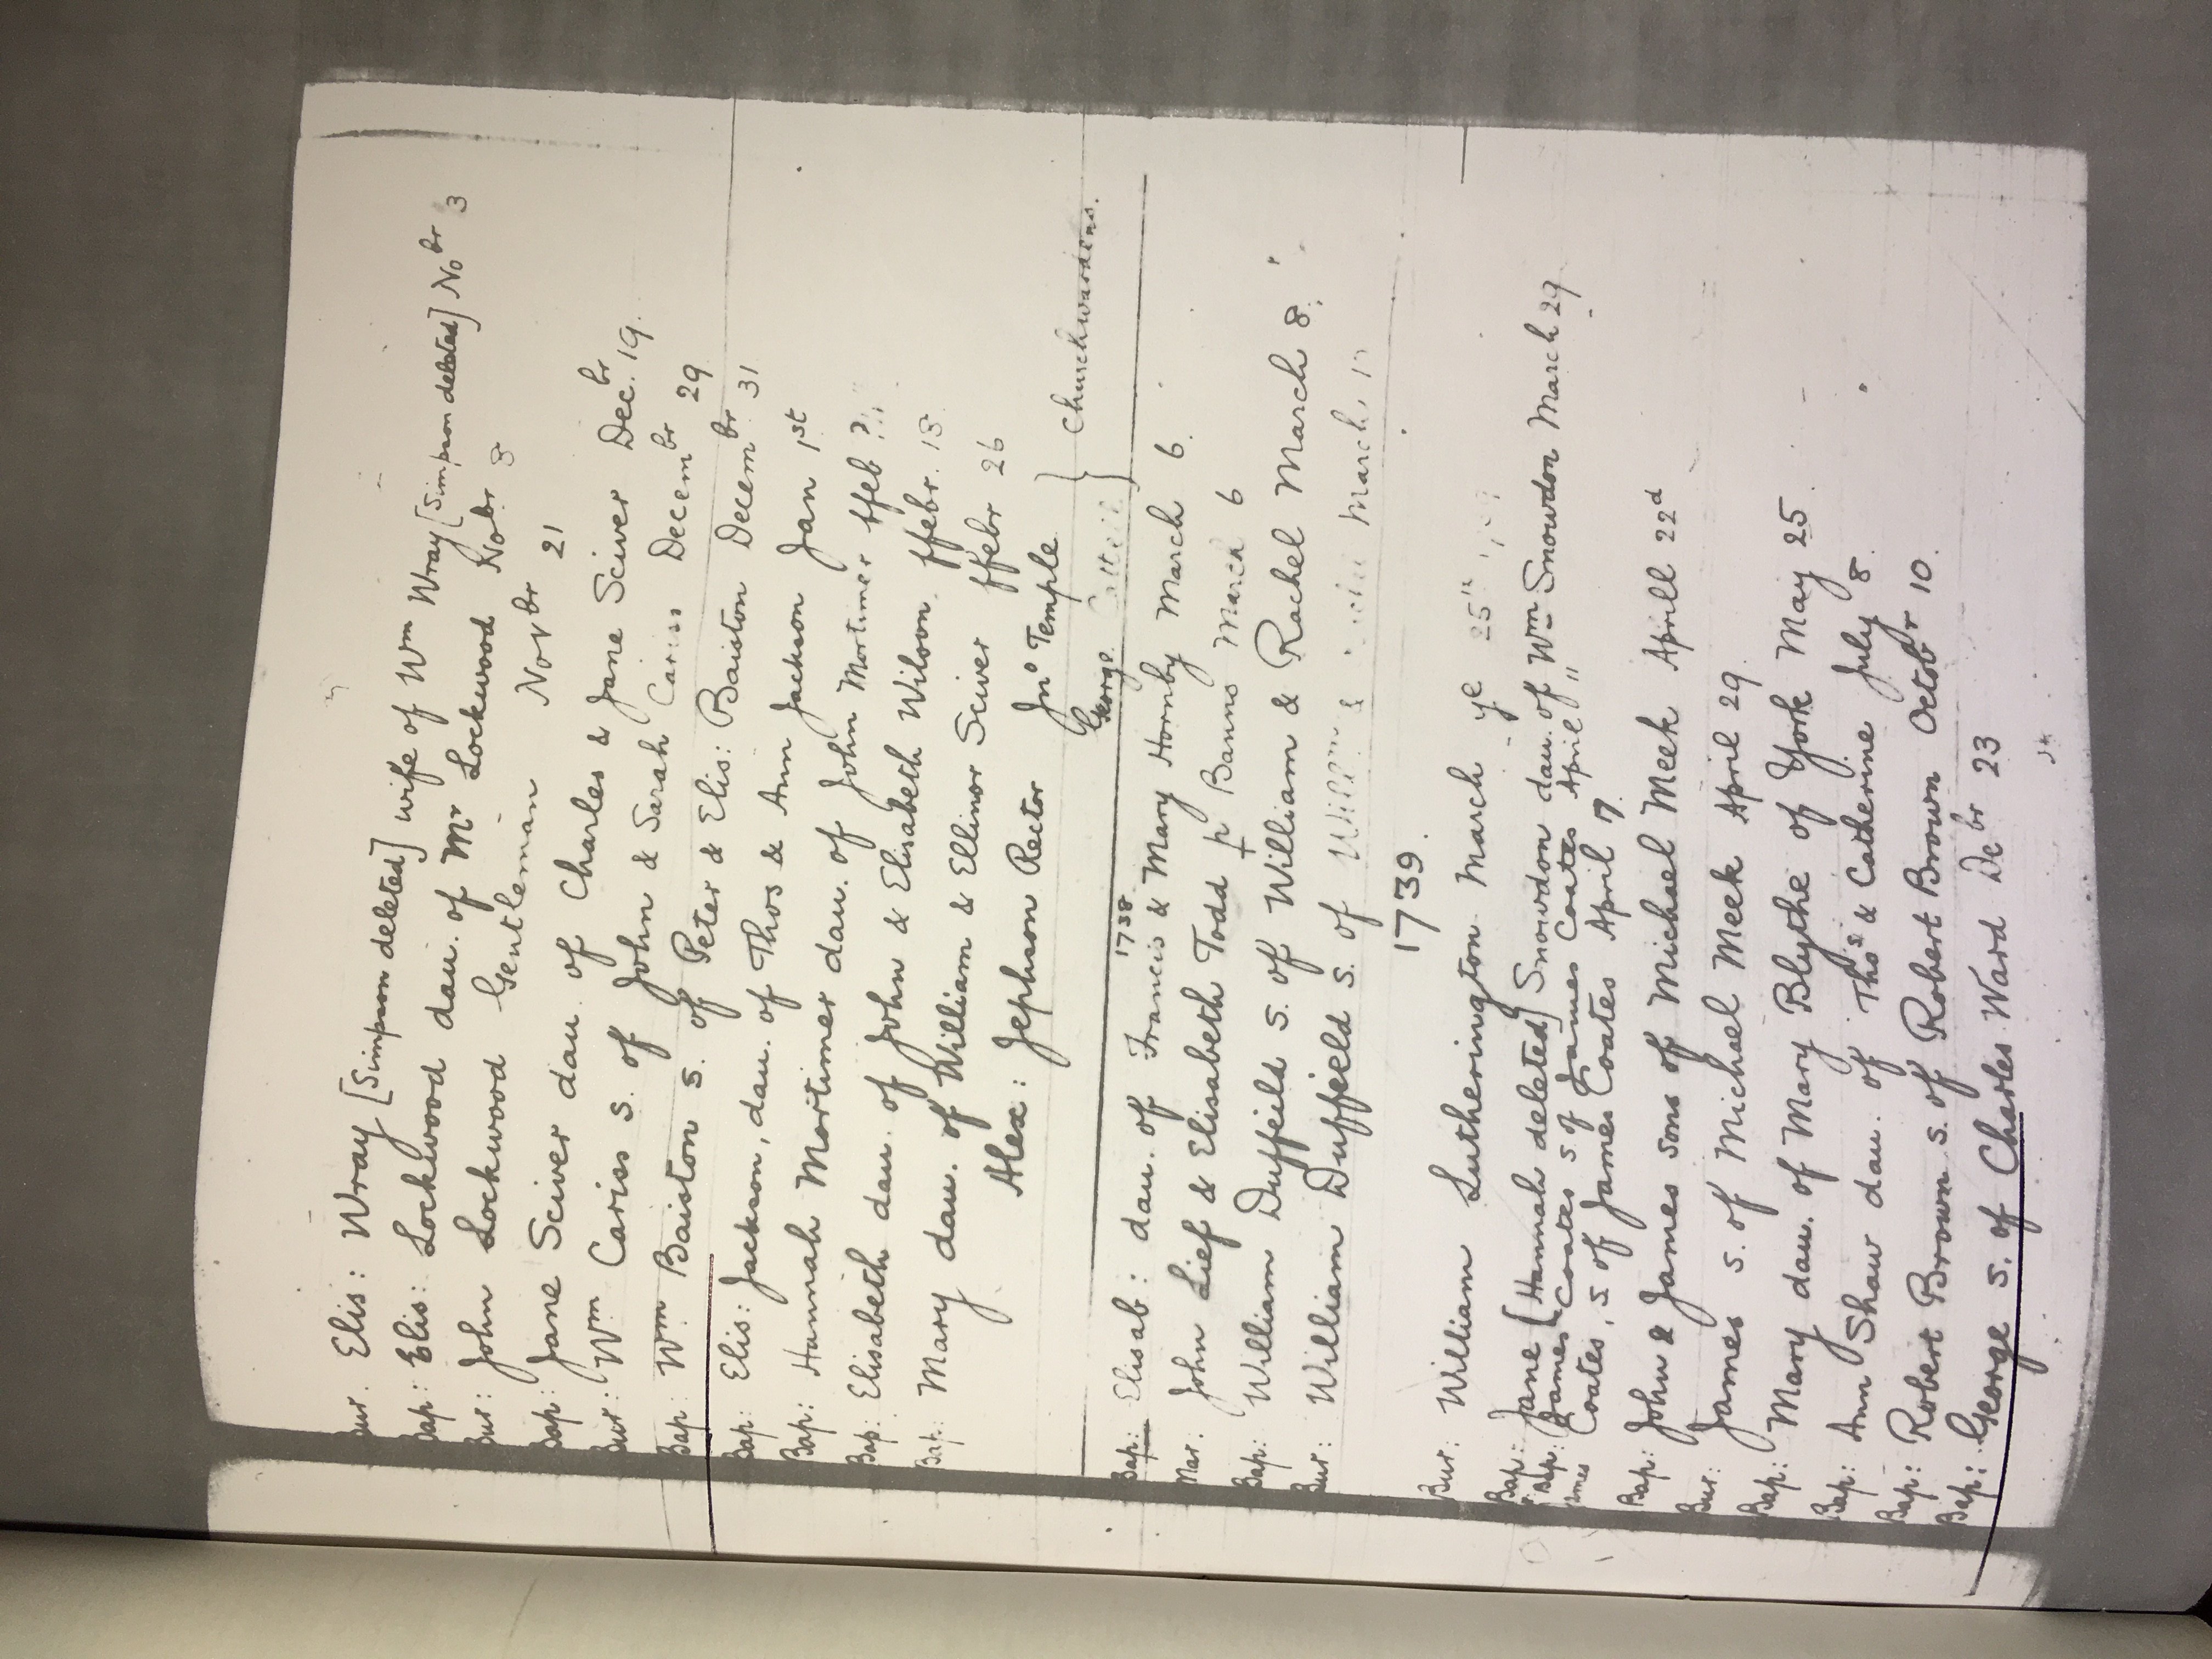 Bur. Elis: Wray [Simpson deleted] wife of Wm Wray [Simpson deleted] Nobr 3
Bap: Elis: Lockwood dau. of Mr Lockwood Nobr. 8
Bur: John Lockwood Gentleman Novbr 21
Bap: Jane Sciver dau of Charles & Jane Sciver Decbr. 19.
Bur: Wm Cariss s. of John & Sarah Cariss Decembr 29
Bap: Wm Baiston s. of Peter & Elis: Baiston Decembr 31
Bap: Elis: Jackson, dau. of Thos & Ann Jackson Jan 1st
Bap: Hannah Mortimer dau. of John Mortimer ffeb
Bap: Elisabeth dau. of John & Elisabeth Wilson. ffebr. 18.
Bap: Mary dau. of William & Ellinor Sciver ffebr 26
Alex: Jephson Rector Jno Temple }
George } Churchwardens.
1738
Bap: Elisab: dau. of Francis & Mary Hornby March 6.
Mar. John Lief & Elisabeth Todd p Banns March 6
Bap: William Duffeild s. of William & Rachel March 8.
Bur: William Duffield s. of Willm & March
1739.
Bur: William Lutherington March ye 25th
Bap: Jane [Hannah deleted] Snowdon dau. of Wm Snowdon March 29
Bap: James Coates s of James Coates April "
James Coates, s of James Coates April 17.
Bap: John & James sons of Michael Meek Aprill 22d
Bur: James s. of Michael Meek April 29
Bap: Mary dau. of Mary Blythe of York May 25.
Bap: Ann Shaw dau. of Thos & Catherine July 8.
Bap: Robert Brown s. of Robert Brown Octobr 10.
Bap: George s. of Charles Ward Debr 23